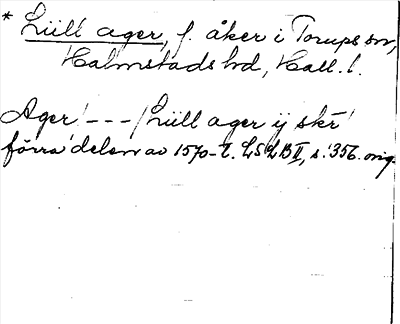 * Lüll ager, f. åker i Torups sn,
Halmstads hd, Hall. l.
Ager - - - / Lüll ager ÿ skr̄
förra delen av 1570-t. LSLB II, s. 356. orig.